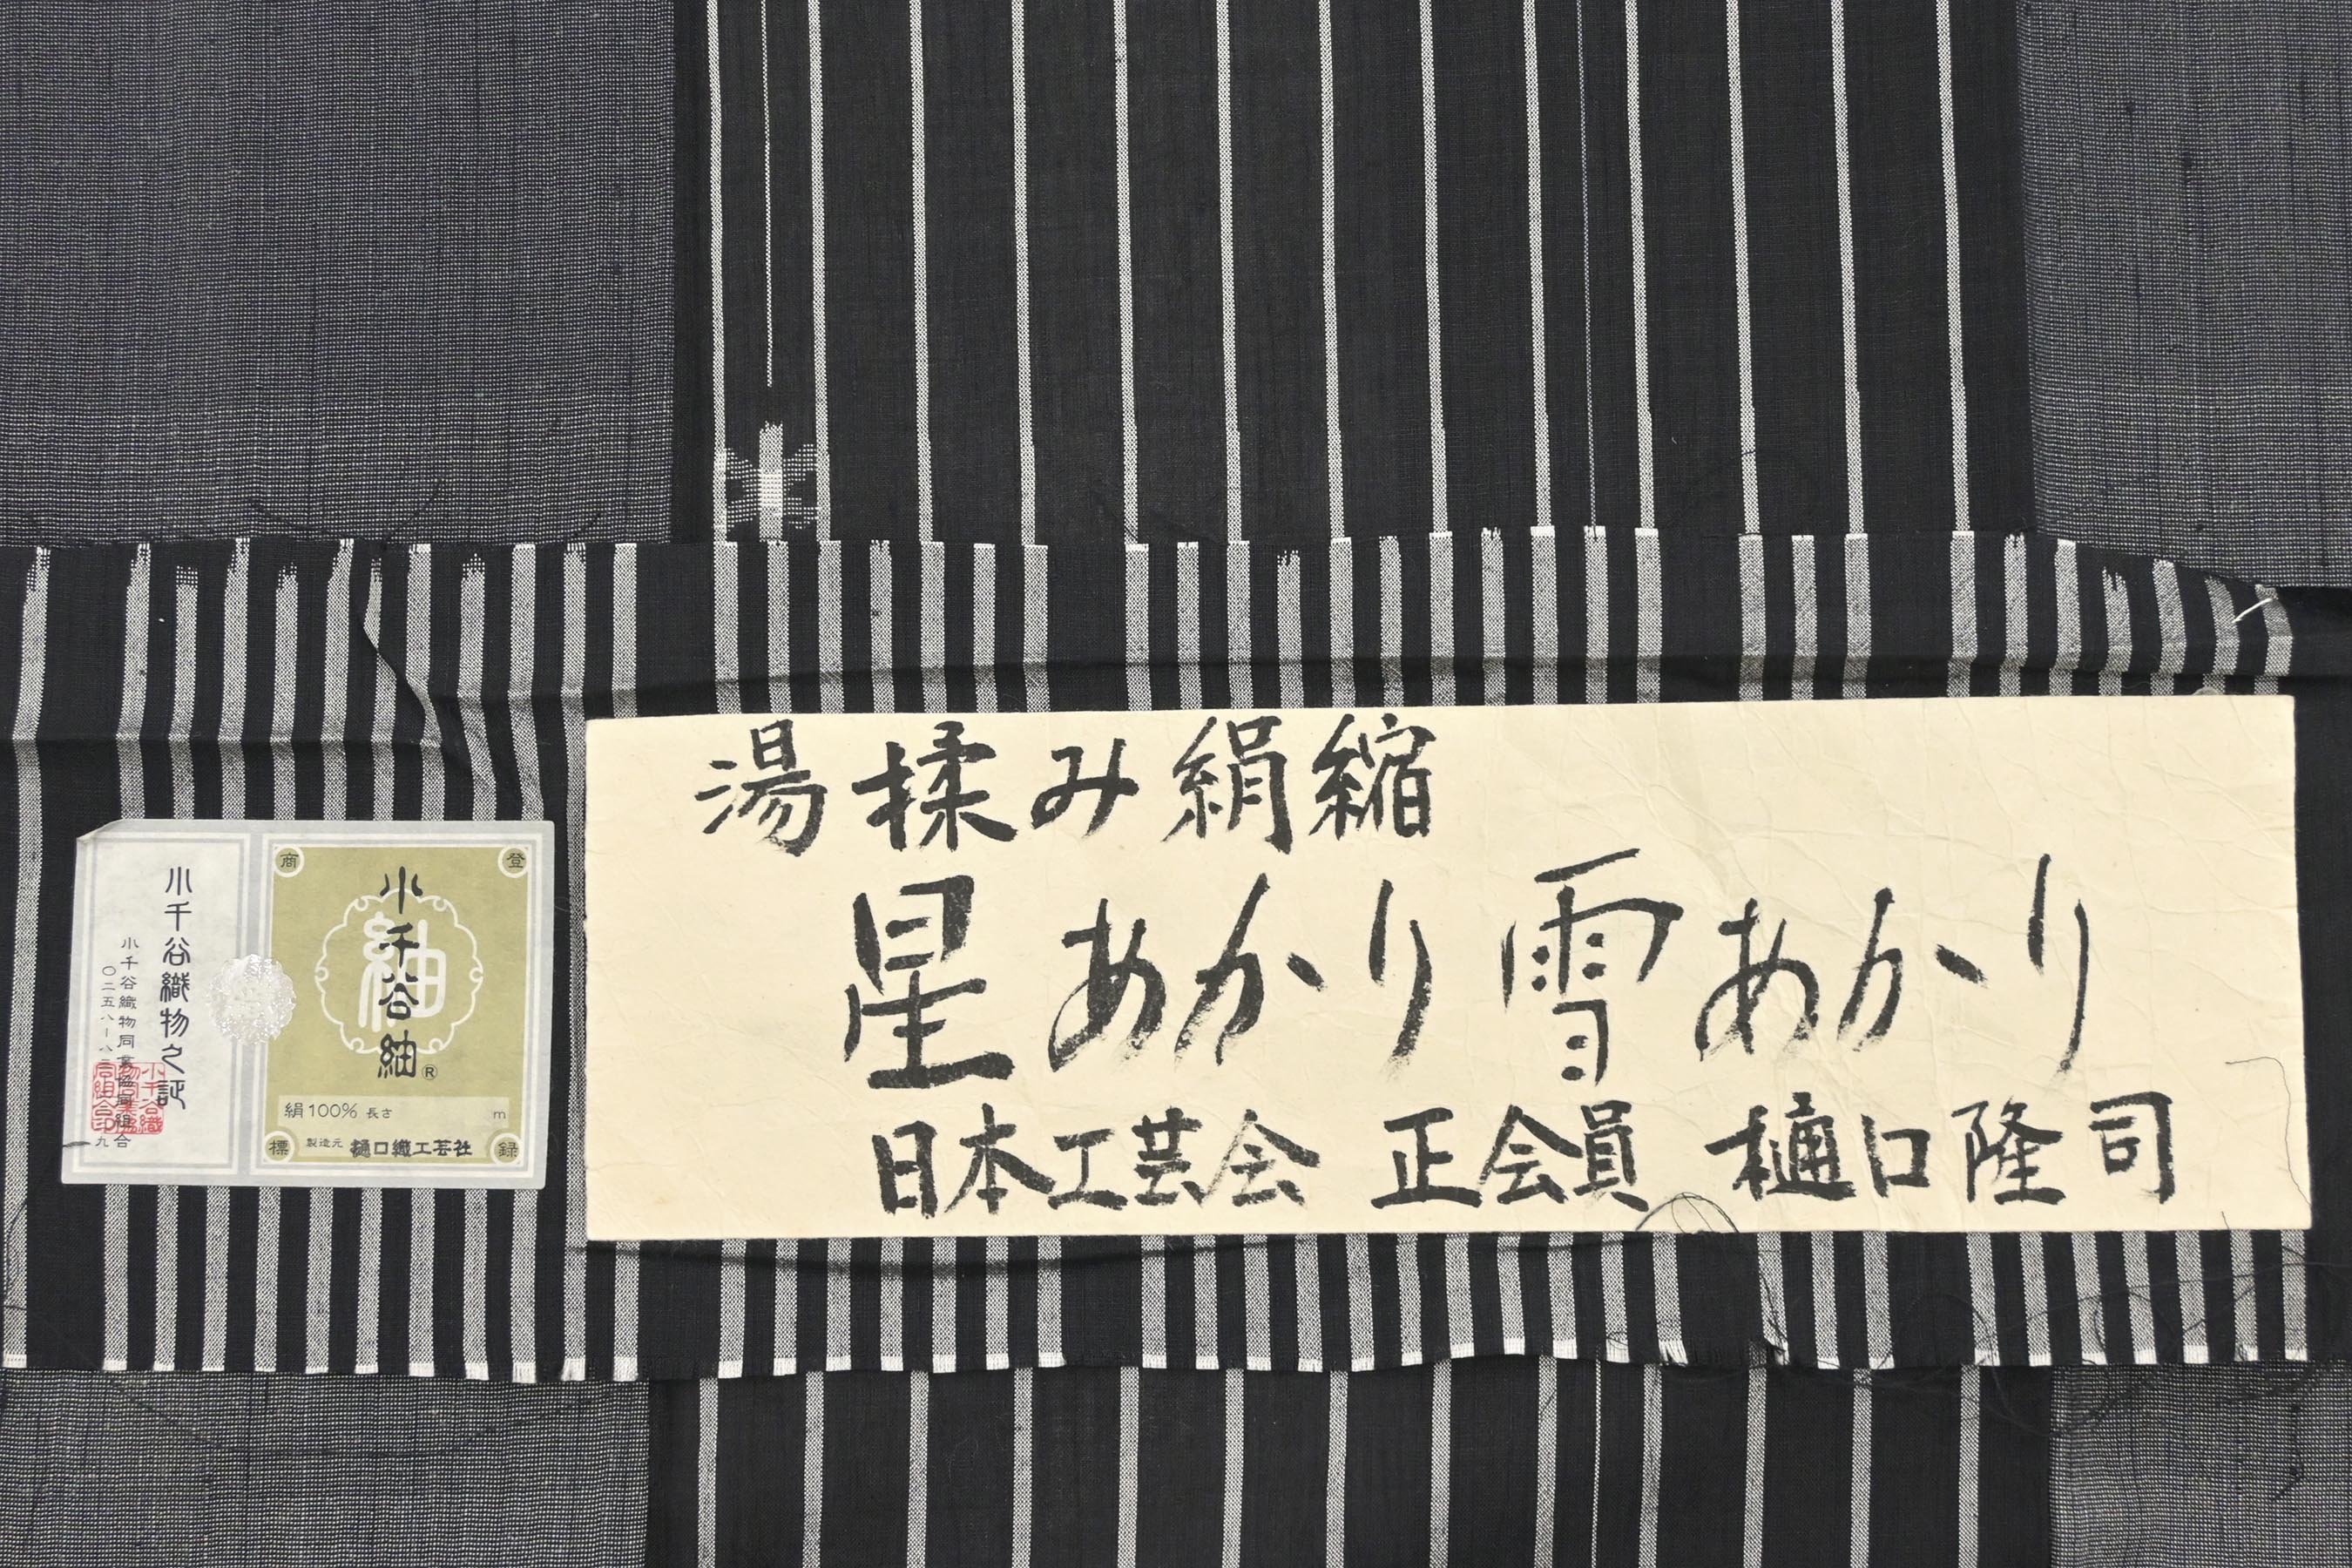 湯揉み絹縮
星あかり雪あかり
日本工芸会 正会員 樋口隆司
商 登
小千谷紬®
紬
絹100% 長さ m
標 製造元 樋口織工芸社 録
小千谷織物之証
小千谷織物同業協同組合
〇二五八ー八三
九